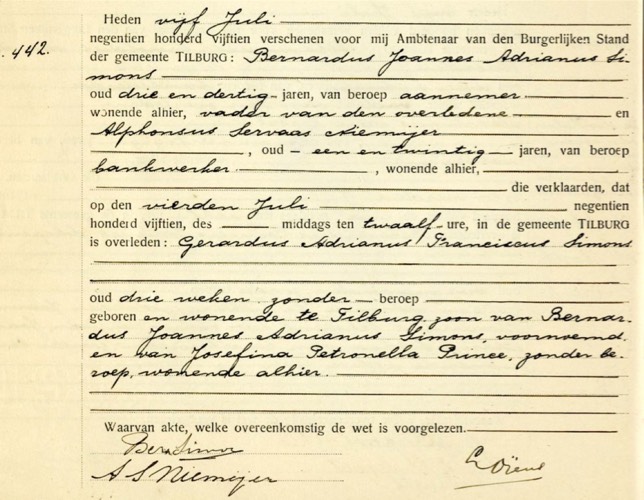 442.
Heden vijf Juli
negentien honderd vijftien verschenen voor mij Ambtenaar van den Burgerlijken Stand
der gemeente TILBURG: Bernardus Joannes Adrianus Si-
mons
oud drie en dertig jaren, van beroep aannemer
wonende alhier, vader van den overledene en
Alphonsus Servaas Niemijer
, oud een en twintig jaren, van beroep
bankwerker , wonende alhier,
die verklaarden, dat
op den vierden Juli negentien
honderd vijftien, des middags ten twaalf ure, in de gemeente TILBURG
is overleden: Gerardus Adrianus Franciscus Simons
oud drie weken zonder beroep
geboren en wonende te Tilburg, zoon van Bernar-
dus Joannes Adrianus Simons, voornoemd,
en van Josefina Petronella Prince, zonder be-
roep, wonende alhier.
Waarvan akte, welke overeenkomstig de wet is voorgelezen.
Ber. Simons
A S Niemijer